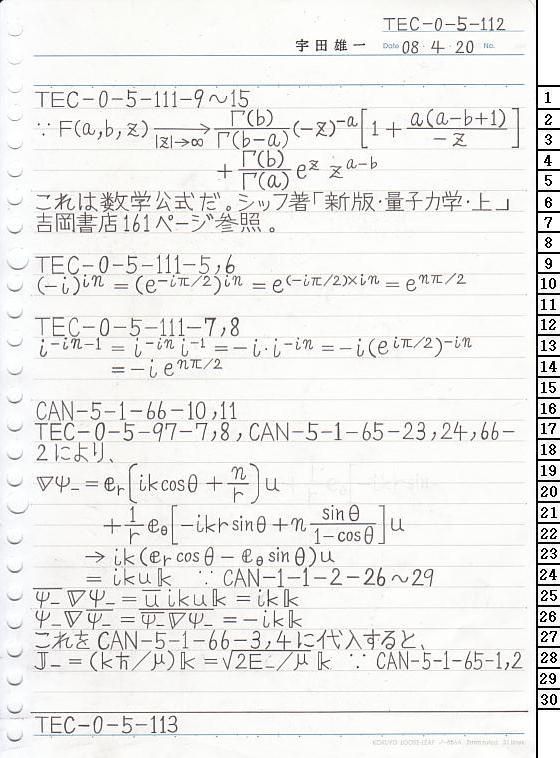 TEC-0-5-112
宇田雄一 Date 08・4・20 No.
TEC-0-5-111-9～15
∵ F(a,b,z) →|z|→∞ Γ(b)/Γ(b-a) (-z)^-a [1 + a(a-b+1)/-z]
+ Γ(b)/Γ(a) e^z z^a-b
これは数学公式だ。シッフ著「新版・量子力学・上」
吉岡書店161ページ参照。
TEC-0-5-111-5,6
(-i)^in = (e^-iπ/2)^in = e^(-iπ/2)×in = e^nπ/2
TEC-0-5-111-7,8
i^-in-1 = i^-in i^-1 = -i・i^-in = -i(e^iπ/2)^-in
= -i e^nπ/2
CAN-5-1-66-10,11
TEC-0-5-97-7,8, CAN-5-1-65-23,24,66-
2により、
∇Ψ₋ = 𝕖r[ik cosθ + n/r]u
+ 1/r 𝕖θ[-ikr sinθ + n sinθ/1-cosθ]u
→ ik(𝕖r cosθ - 𝕖θ sinθ)u
= iku𝕜 ∵ CAN-1-1-2-26～29
Ψ̅₋∇Ψ₋ = u̅iku𝕜 = ik𝕜
Ψ₋∇Ψ̅₋ = \overline{Ψ̅₋∇Ψ₋} = -ik𝕜
これをCAN-5-1-66-3,4に代入すると、
J₋ = (kħ/μ)𝕜 = √2E₋/μ 𝕜 ∵ CAN-5-1-65-1,2
TEC-0-5-113
KOKUYO LOOSE-LEAF
1
2
3
4
5
6
7
8
9
10
11
12
13
14
15
16
17
18
19
20
21
22
23
24
25
26
27
28
29
30